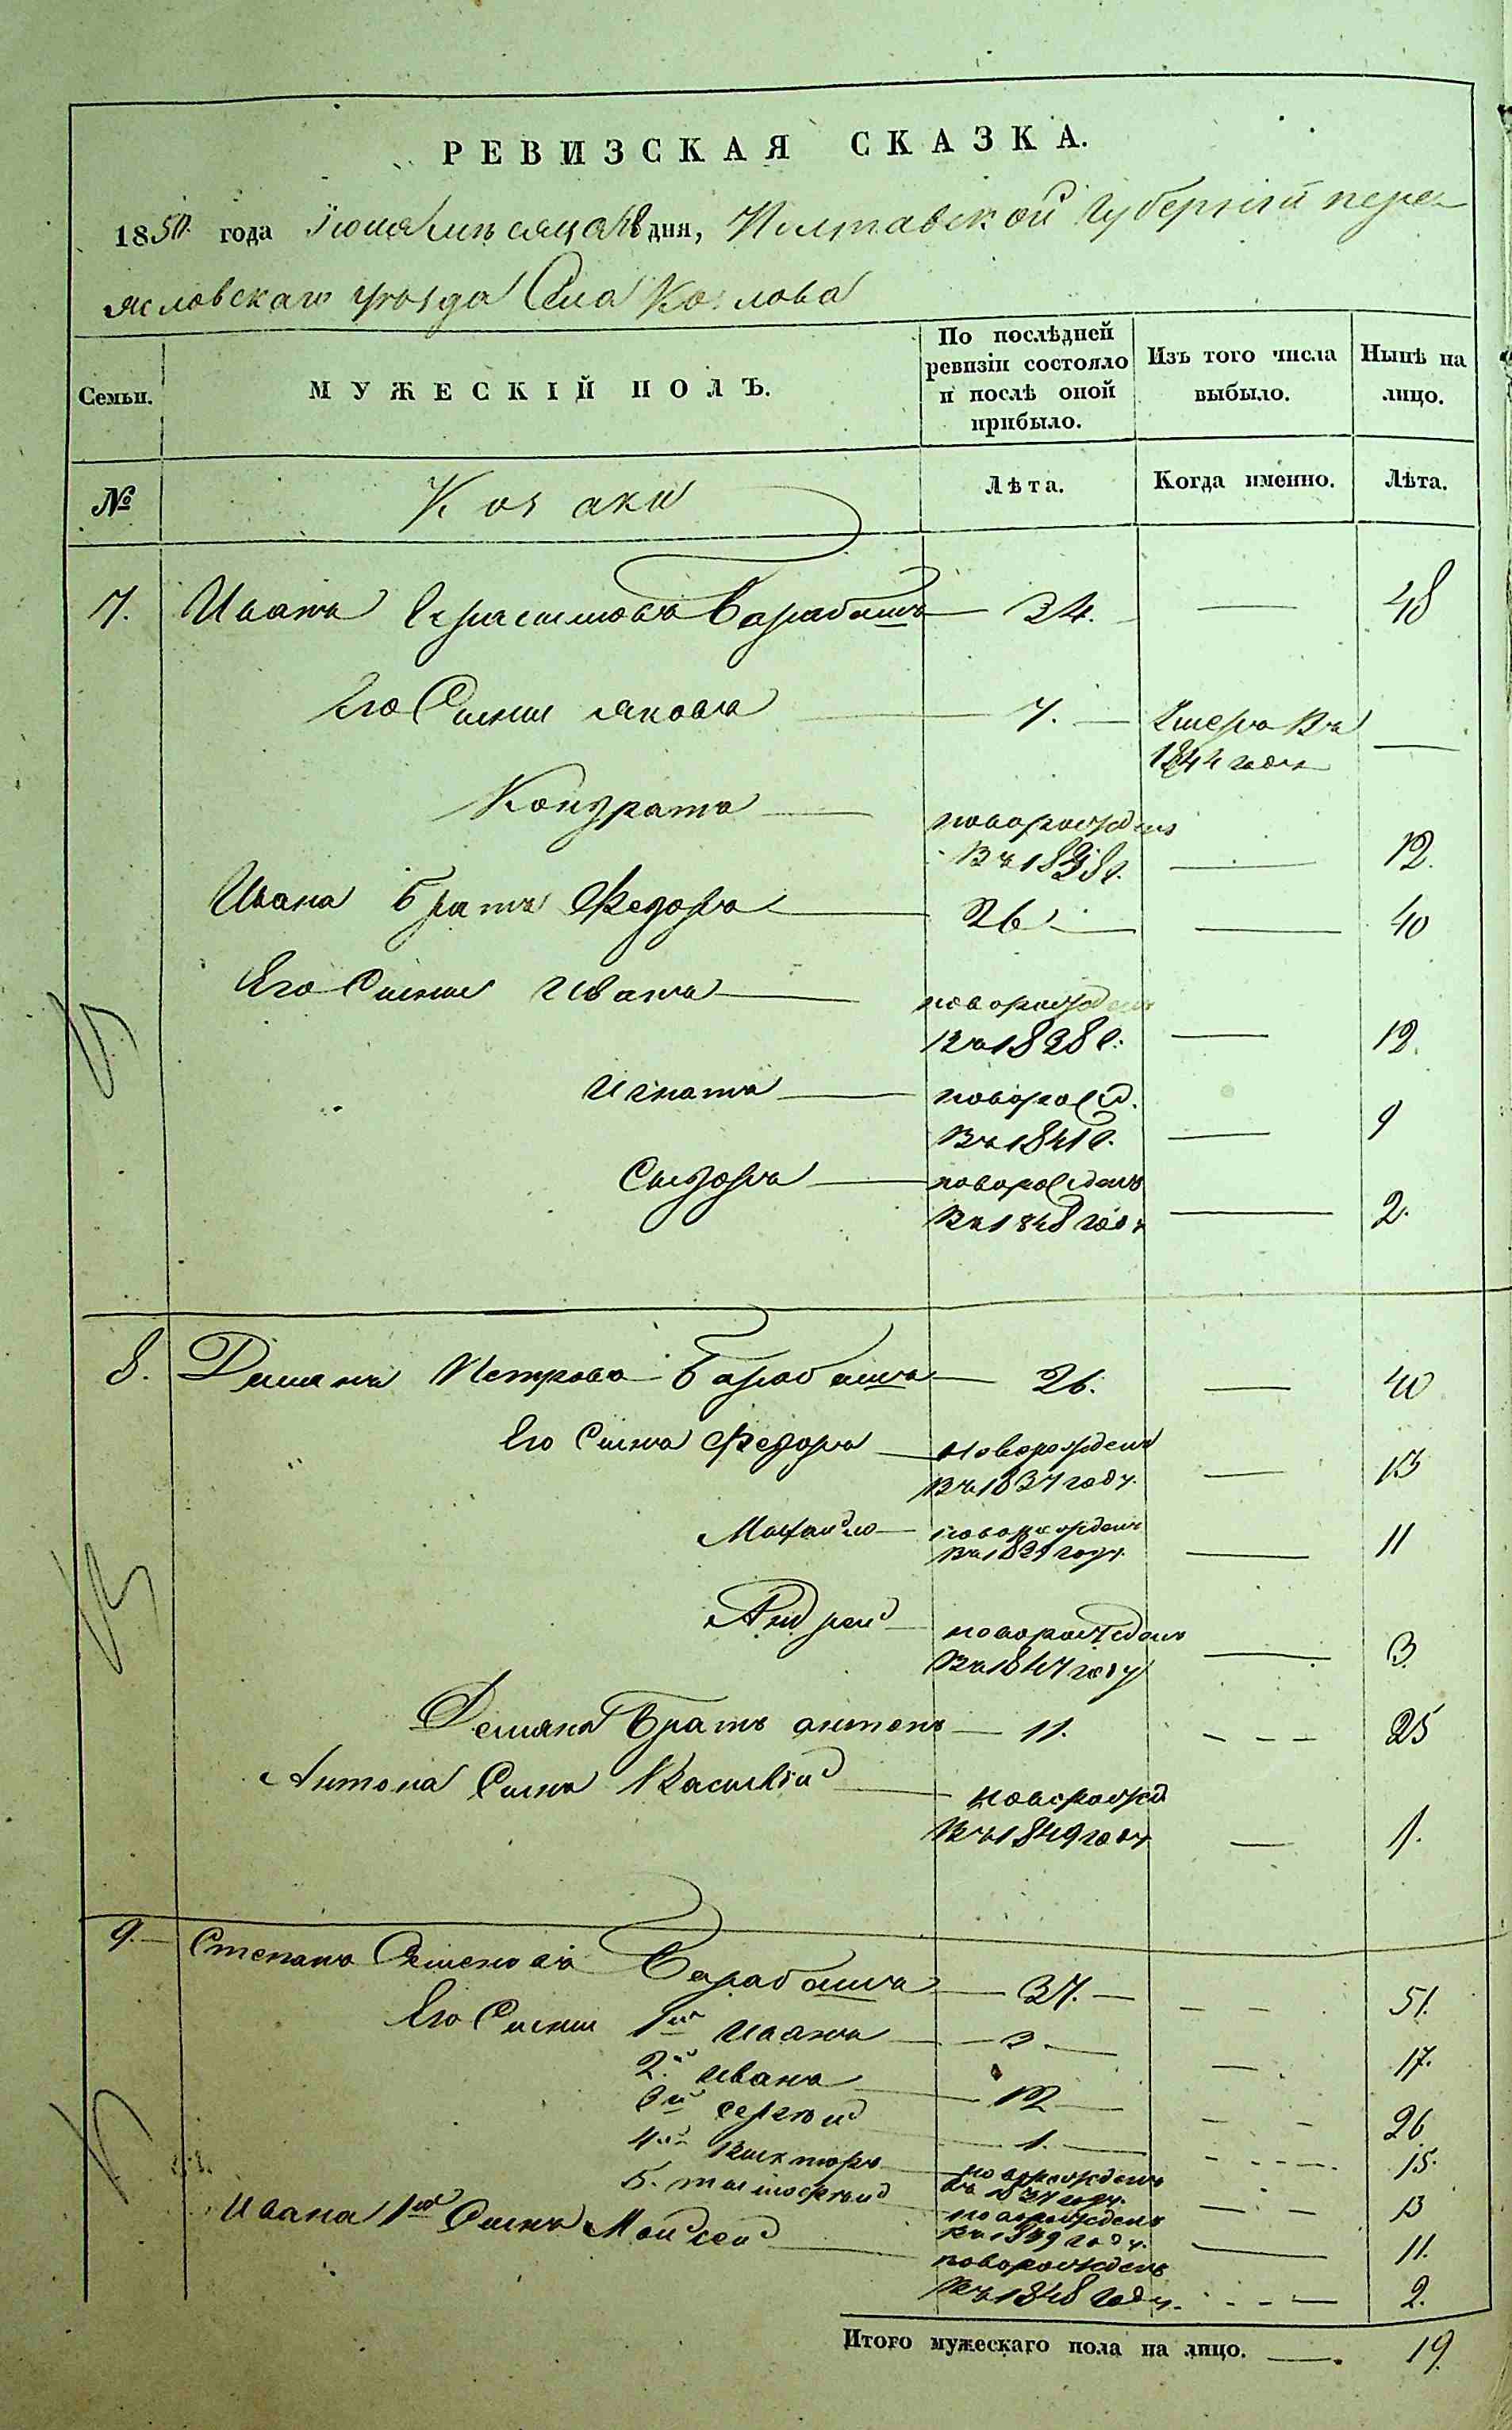 РЕВИЗСКАЯ СКАЗКА.
1850 года Іюня месяца дня, Полтавской губерніи перея
ясловскаго уезда Села Козлова
Семьи.
МУЖЕСКІЙ ПОЛЪ.
По послѣдней
ревизіи состояло
и послѣ оной
прибыло.
Изъ того числа
выбыло.
Нынѣ на
лицо.
№
Козаки
Лѣта.
Когда именно.
Лѣта.
7. Иванъ Герасимовъ Барабашъ 34. 48
Его Сыны Яковъ 7. Умеръ Въ
1844 году
Кондратъ новорожденъ
Въ 1838 г. 12.
Ивана Братъ Федоръ 26 40
Его Сыны Иванъ новорожденъ
Въ 1838 г. 12.
Игнатъ новорожд.
Въ 1841 г. 9
Сидоръ новорожденъ
Въ 1848 году 2.
8. Демянъ Петровъ Барабашъ 26. 40
Его Сынъ Федоръ Новорожденъ
Въ 1837 году. 13
Михайло новорожденъ
Въ 1839 году. 11
Андрей новорожденъ
Въ 1847 году 3.
Демяна Братъ антонъ 11. 25
Антона Сынъ Василій новорожд
Въ 1849 году 1.
9. Степанъ Семеновъ Барабашъ 37. 51.
Его Сыны 1й Иванъ 3. 17.
2й Иванъ 12 26
3й Сергѣй 1. 15.
4й Викторъ новорожденъ
Въ 1837 году. 13
5. тимофѣй новорожденъ
Въ 1839 году. 11.
Ивана 1го Сынъ Мойсей новорожденъ
Въ 1848 году. 2.
Итого мужескаго пола на лицо. 19.